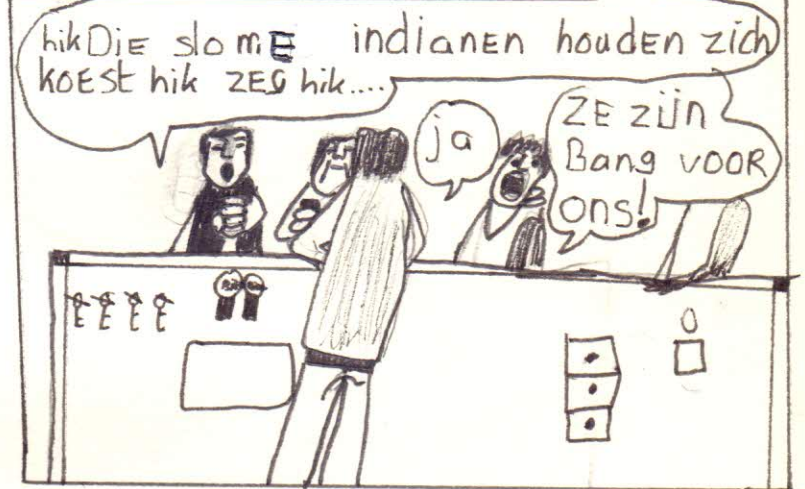 hik DiE slomE indianEn houdEn zich
koESt hik ZEG hik....
ja
ZE zijn
Bang vooR
ons!